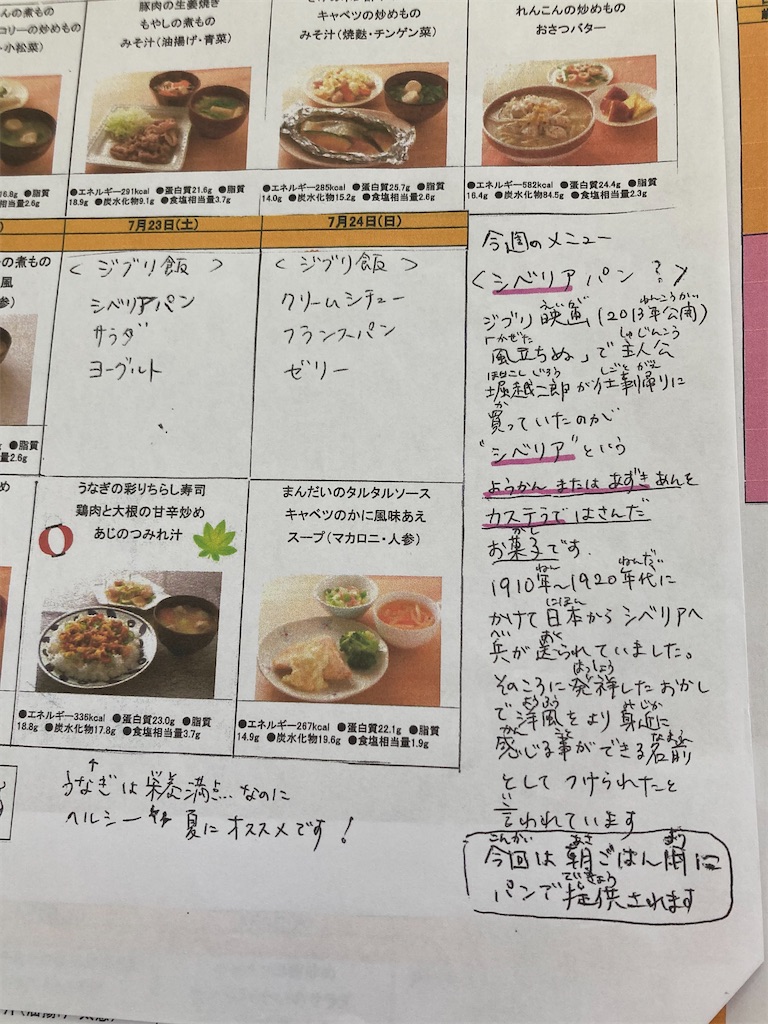 んの煮もの
コリーの炒めもの
・小松菜)
豚肉の生姜焼き
もやしの煮もの
みそ汁(油揚げ・青菜)
キャベツの炒めもの
みそ汁(焼麩・チンゲン菜)
れんこんの炒めもの
おさつバター
16.8g ●脂質
●食塩相当量2.6g
●エネルギー291kcal ●蛋白質21.6g ●脂質
18.9g ●炭水化物9.1g ●食塩相当量3.7g
●エネルギー285kcal ●蛋白質25.7g ●脂質
14.0g ●炭水化物15.2g ●食塩相当量2.6g
●エネルギー582kcal ●蛋白質24.4g ●脂質
16.4g ●炭水化物84.5g ●食塩相当量2.3g
7月23日(土)
7月24日(日)
の煮もの
風
参)
<ジブリ飯>
シベリアパン
サラダ
ヨーグルト
<ジブリ飯>
クリームシチュー
フランスパン
ゼリー
●脂質
量2.6g
うなぎの彩りちらし寿司
鶏肉と大根の甘辛炒め
あじのつみれ汁
まんだいのタルタルソース
キャベツのかに風味あえ
スープ(マカロニ・人参)
●エネルギー336kcal ●蛋白質23.0g ●脂質
18.8g ●炭水化物17.8g ●食塩相当量3.7g
●エネルギー267kcal ●蛋白質22.1g ●脂質
14.9g ●炭水化物19.6g ●食塩相当量1.9g
↑
うなぎは栄養満点なのに
ヘルシー 夏にオススメです!
今週のメニュー
<シベリアパン?>
ジブリ映画(2013年公開)
「風立ちぬ」で主人公
堀越二郎が仕事帰りに
買っていたのが
"シベリア"という
ようかんまたはあずきあんを
カステラではさんだ
お菓子です.
1910年~1920年代に
かけて日本からシベリアへ
兵が送られていました。
そのころに発祥したおかし
で洋風をより身近に
感じる事ができる名前
としてつけられたと
言われています
今回は朝ごはん用に
パンで提供されます